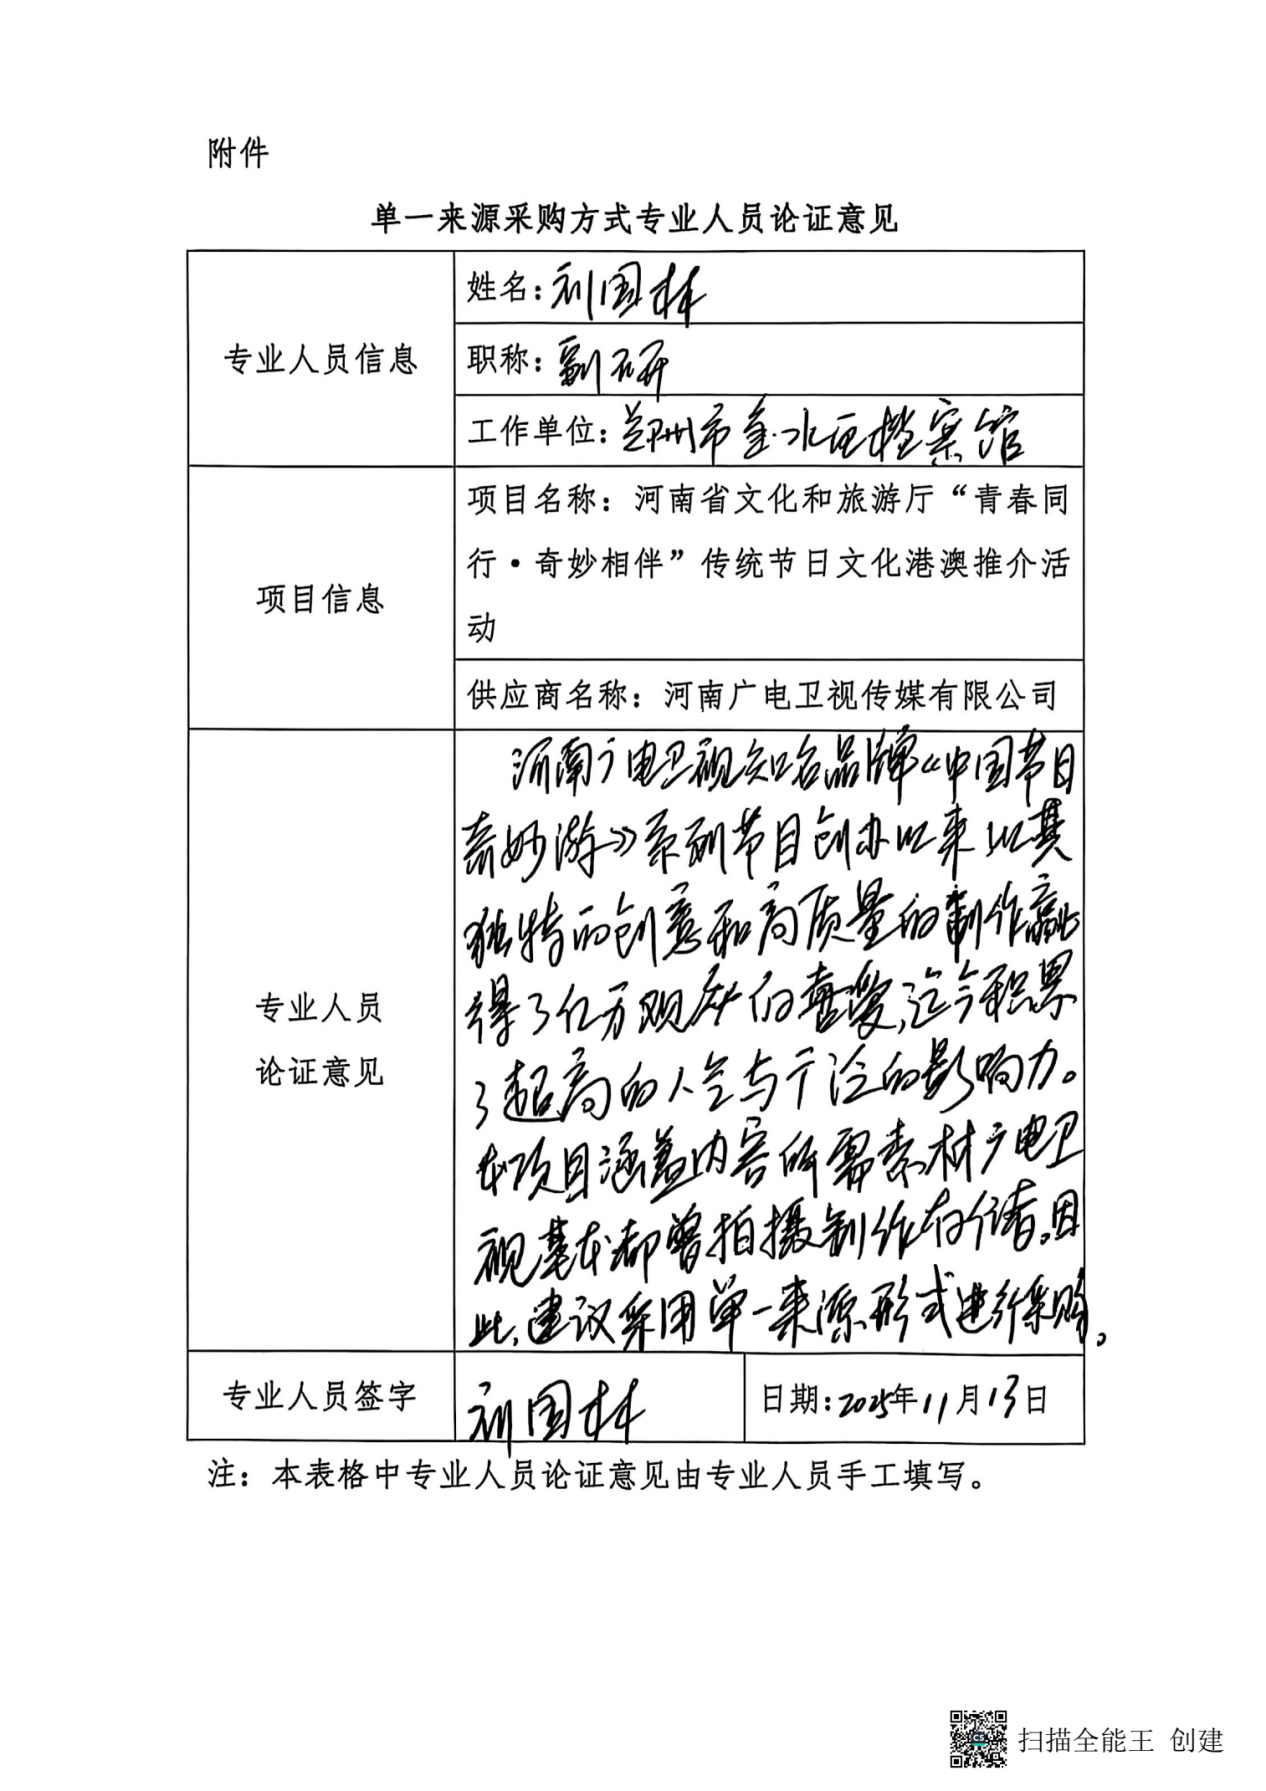 附件
单一来源采购方式专业人员论证意见
专业人员信息
姓名：刘国林
职称：副研
工作单位：郑州市金水区档案馆
项目信息
项目名称：河南省文化和旅游厅“青春同
行·奇妙相伴”传统节日文化港澳推介活
动
供应商名称：河南广电卫视传媒有限公司
专业人员
论证意见
河南广电卫视知名品牌《中国节日
奇妙游》系列节目创办以来以其
独特的创意和高质量的制作赢
得了亿万观众的喜爱，迄今积累
了超高的人气与广泛的影响力。
本项目涵盖内容所需素材广电卫
视基本都曾拍摄制作存储。因
此，建议采用单一来源形式进行采购。
专业人员签字
刘国林
日期：2025年11月13日
注：本表格中专业人员论证意见由专业人员手工填写。
扫描全能王 创建